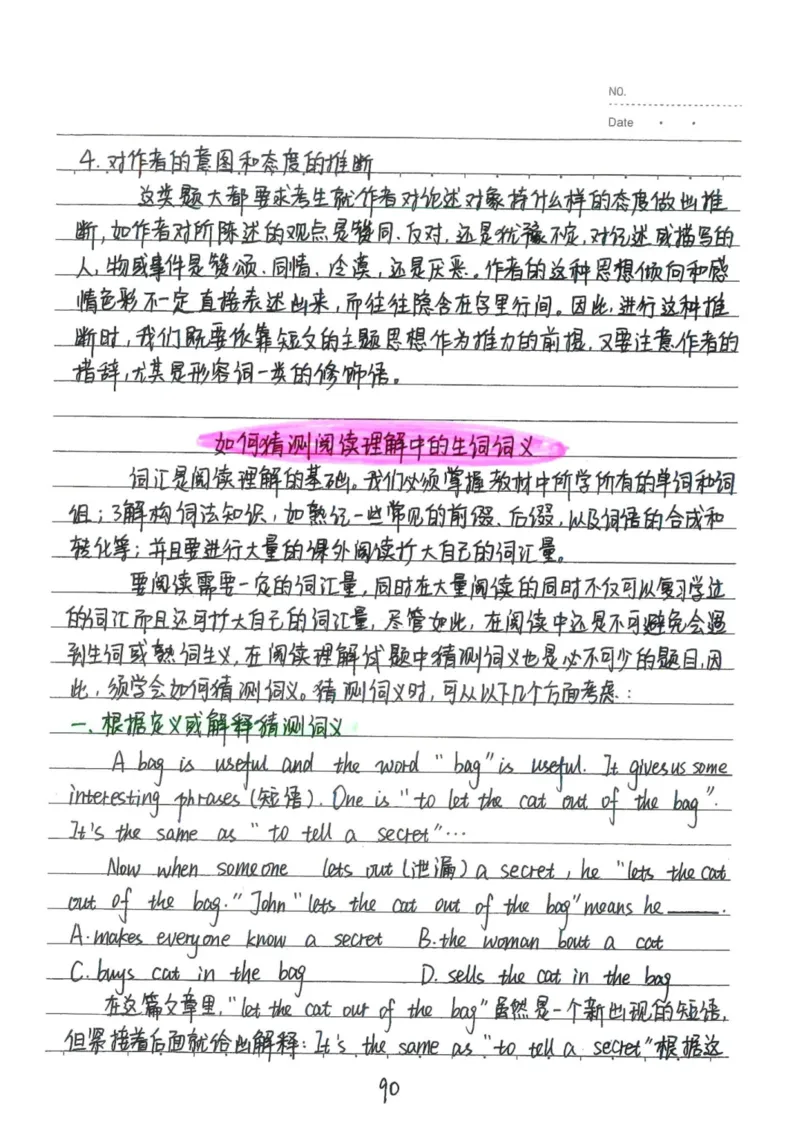 NO.
Date
4. 对作者的意图和态度的推断
这类题大都要求考生就作者对论述对象持什么样的态度做出推
断,如作者对所陈述的观点是赞同、反对,还是犹豫不定,对记述或描写的
人,物或事件是赞颂、同情、冷漠,还是厌恶。作者的这种思想倾向和感
情色彩不一定直接表述出来,而往往隐含在字里行间。因此,进行这种推
断时,我们既要依靠短文的主题思想作为推力的前提,又要注意作者的
措辞,尤其是形容词一类的修饰语。
如何猜测阅读理解中的生词词义
词汇是阅读理解的基础。我们必须掌握教材中所学所有的单词和词
组;了解构词法知识,如熟记一些常见的前缀、后缀,以及词语的合成和
转化等;并且要进行大量的课外阅读扩大自己的词汇量。
要阅读需要一定的词汇量,同时在大量阅读的同时不仅可以复习学过
的词汇而且还可扩大自己的词汇量,尽管如此,在阅读中还是不可避免会遇
到生词或熟词生义,在阅读理解试题中猜测词义也是必不可少的题目,因
此,须学会如何猜测词义。猜测词义时,可从以下几个方面考虑:
一、根据定义或解释猜测词义
A bag is useful and the word "bag" is useful. It gives us some
interesting phrases (短语). One is "to let the cat out of the bag".
It's the same as "to tell a secret"…
Now when someone lets out (泄漏) a secret, he "lets the cat
out of the bag." John "lets the cat out of the bag" means he _____.
A. makes everyone know a secret B. the woman bout a cat
C. buys cat in the bag D. sells the cat in the bag
在这篇文章里,"let the cat out of the bag"虽然是一个新出现的短语,
但紧接着后面就给出解释:It's the same as "to tell a secret"根据这
90